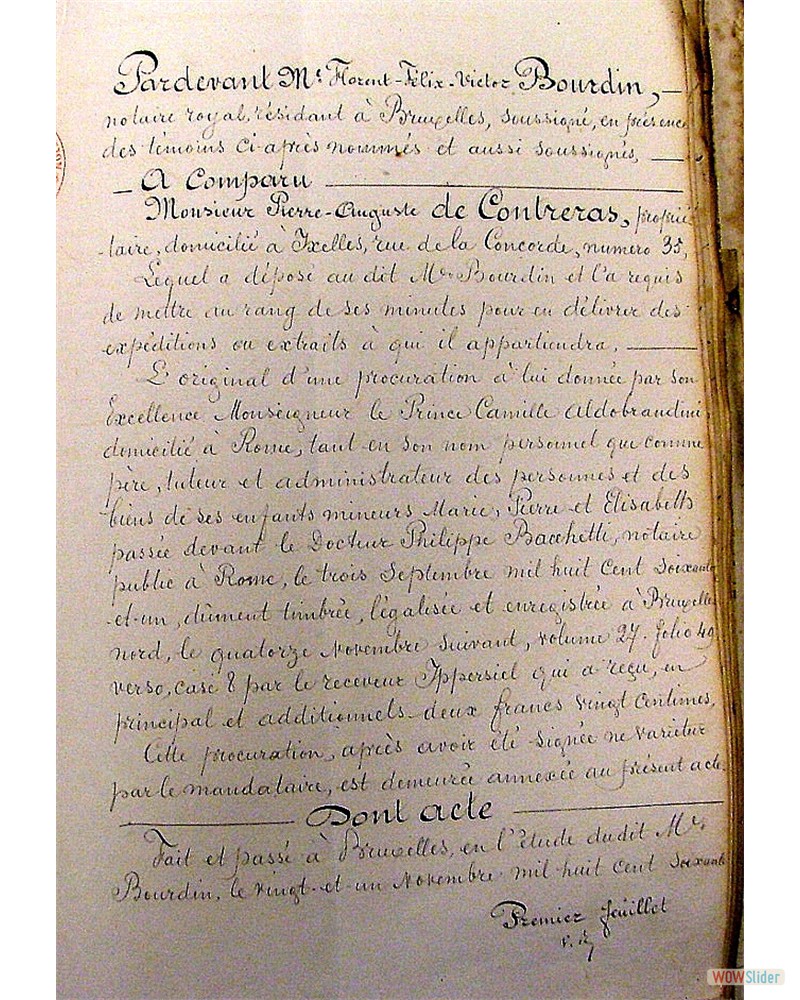 Pardevant Me Florent-Félix-Victor Bourdin, —
notaire royal, résidant à Bruxelles, soussigné, en présence
des témoins ci-après nommés et aussi soussignés, —
— A Comparu —
Monsieur Pierre-Auguste de Contreras, proprié
-taire, domicilié à Ixelles, rue de la Concorde, numero 35,
Lequel a déposé au dit Me Bourdin et l'a requis
de mettre au rang de ses minutes pour en délivrer des
expéditions ou extraits à qui il appartiendra. —
L'original d'une procuration à lui donnée par Son
Excellence Monseigneur le Prince Camille Aldobrandini,
domicilié à Rome, tant en son nom personnel que comme
père, tuteur et administrateur des personnes et des
biens de ses enfants mineurs Marie, Pierre et Elisabeth
passée devant le Docteur Philippe Bacchetti, notaire
public à Rome, le trois Septembre mil huit Cent Soixante
-et-un, dûment timbrée, légalisée et enregistrée à Bruxelles
nord, le quatorze Novembre suivant, volume 27. folio 49
verso, case 8 par le receveur Ippersiel qui a reçu, en
principal et additionnels deux francs vingt centimes,
Cette procuration, après avoir été signée ne varietur
par le mandataire, est demeurée annexée au présent acte.
— Dont acte —
Fait et passé à Bruxelles, en l'étude dudit Me
Bourdin, le vingt-et-un Novembre mil huit cent soixante
Premier feuillet
WOWSlider